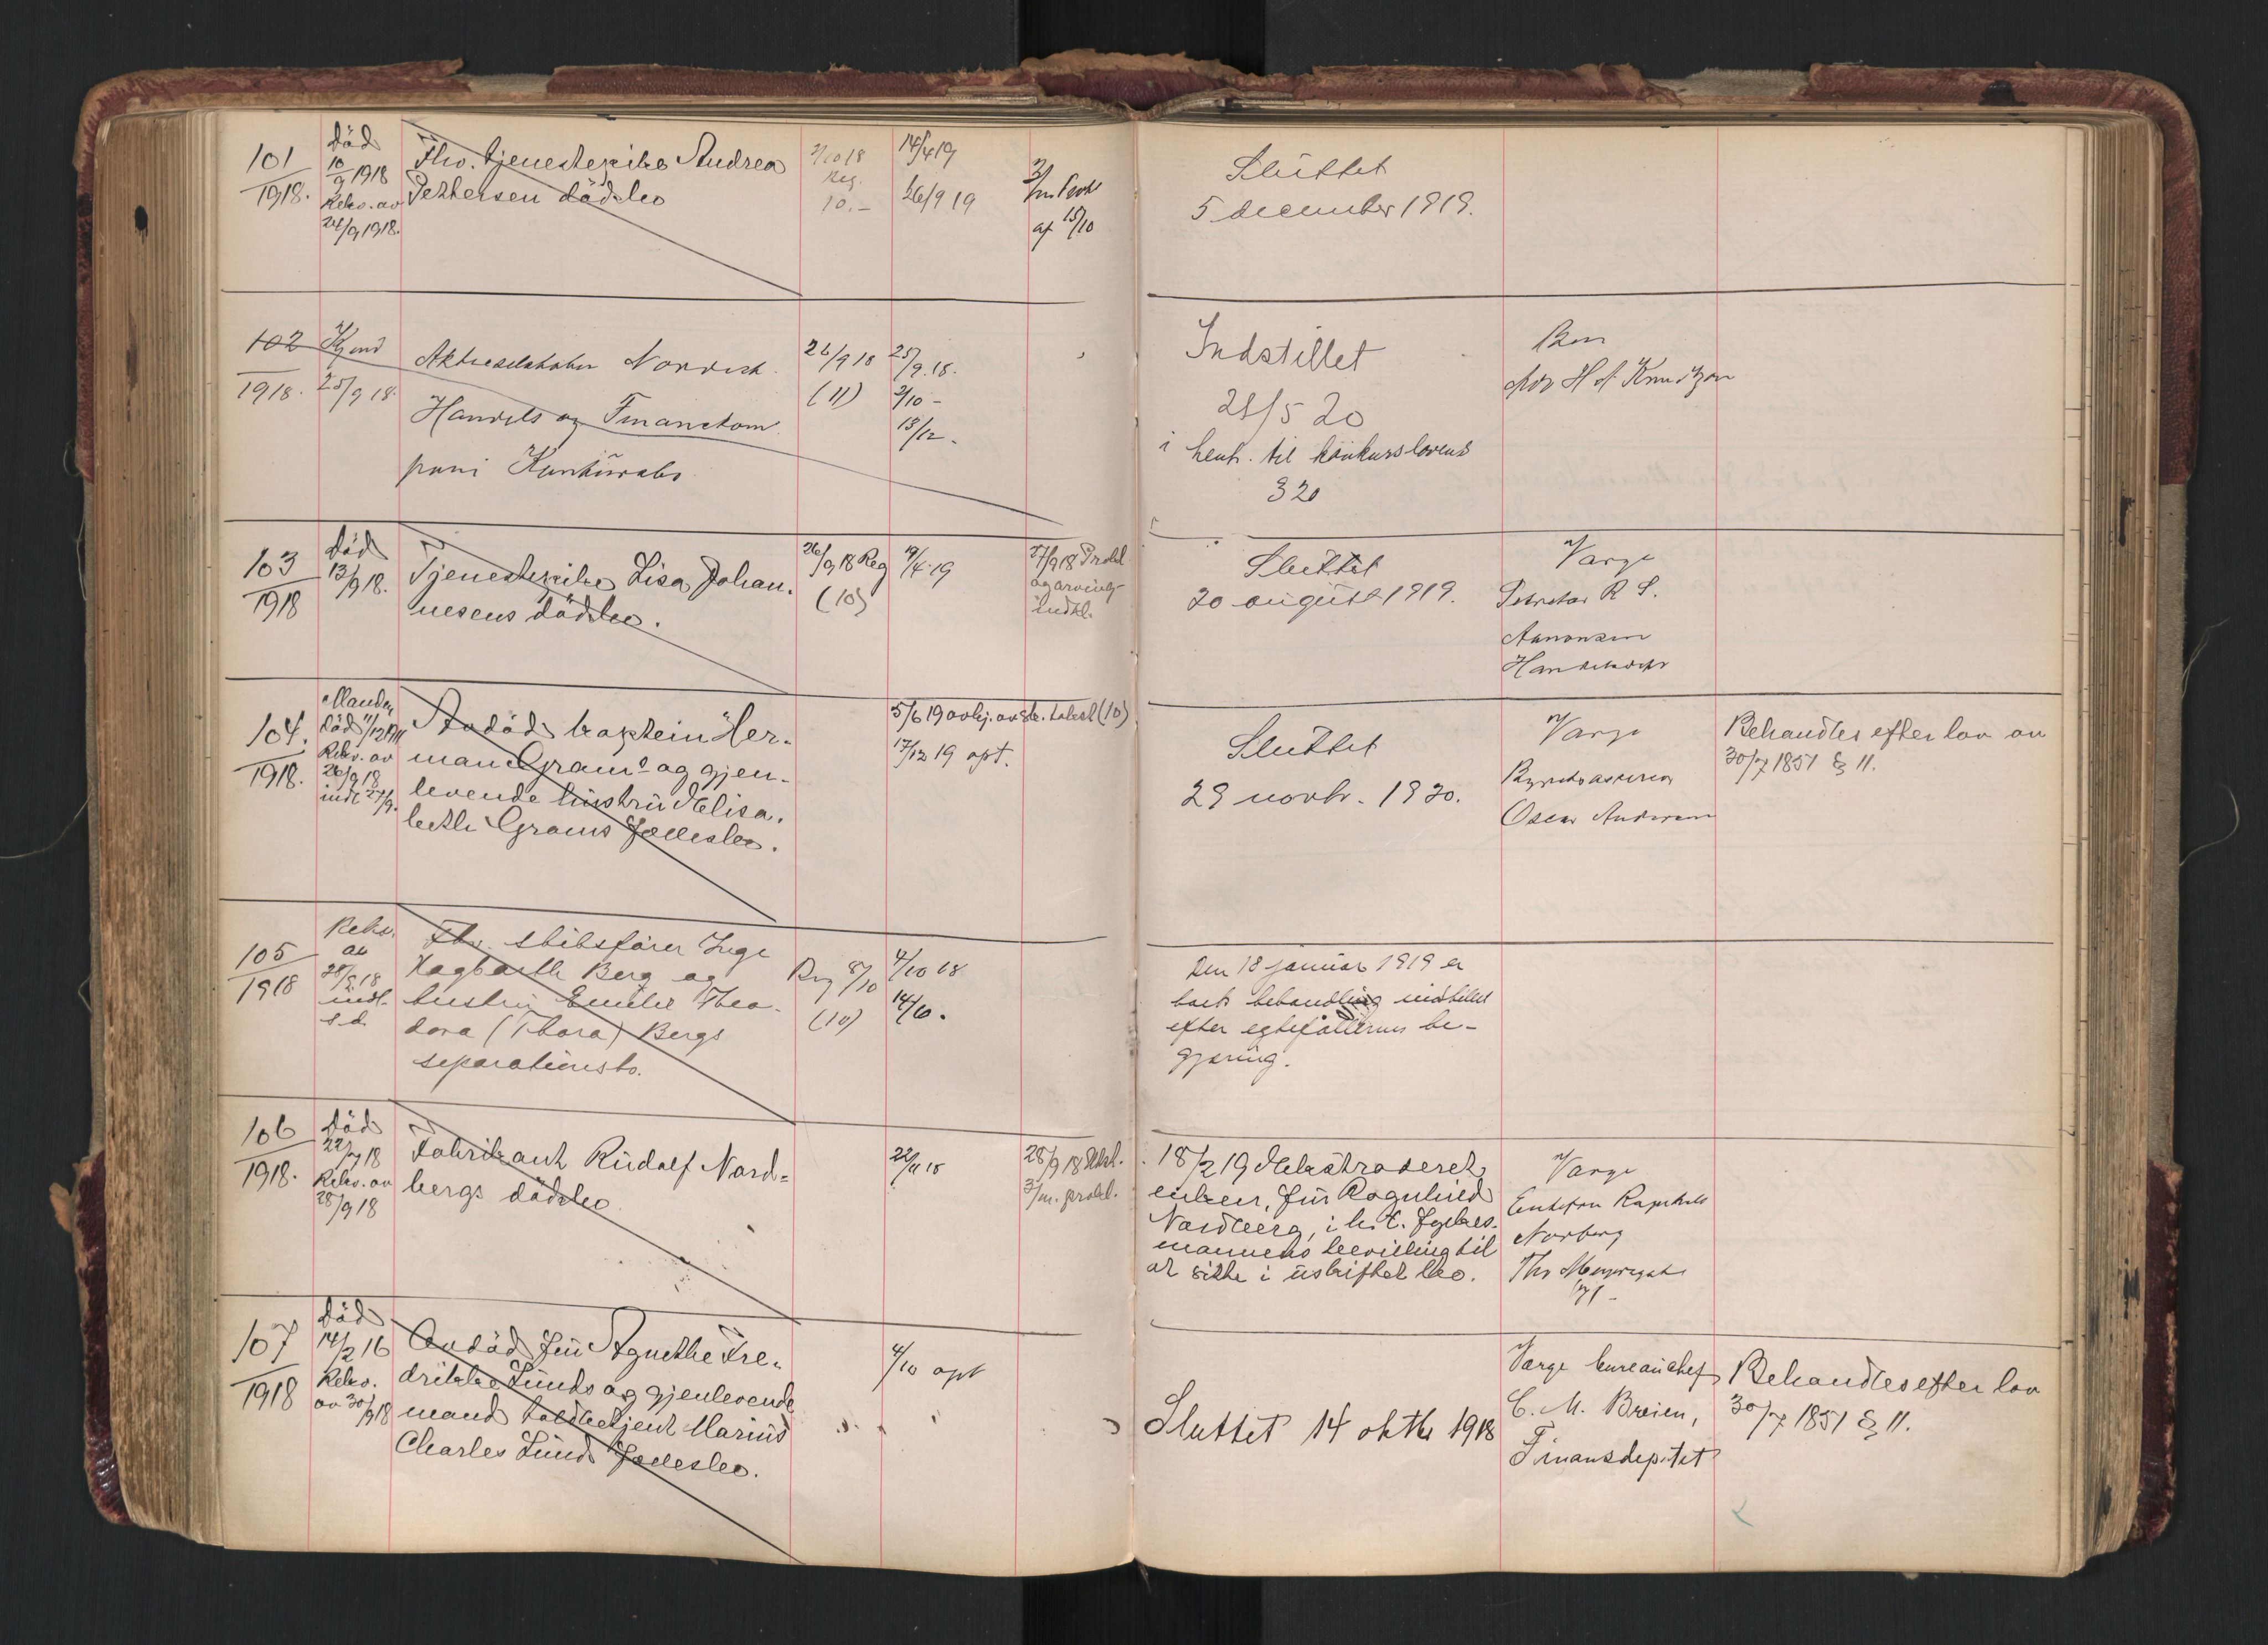 101
1918.
Död
10/9 1918
Rekv. av
26/9 1918.
Fhv. tjenestepike Andrea
Pettersen dödsbo
2/10 18
Reg.
10.-
14/4 19
26/9 19
3/m Prokl
af 15/10
Sluttet
5 december 1919.
102
1918.
Kjend
25/9 18.
Aktieselskabet Nordisk
Handels og Finanskom
pani Konkursbo
26/9 18
(11)
25/9.18.
2/10 -
13/12 -
Indstillet
28/5 20
i henh. til konkurslovens
320
Adv H. A. Knudtzon
103
1918
Död
13/9 18.
Tjenestepike Lisa Johan-
nesens dödsbo.
26/9 18 Reg
(10)
19/4 19
27/9 18 Prokl
og arving-
indkl.
Sluttet
20 august 1919.
Værge
Sekretær R S.
Aanonsen
Handelsdept
104.
1918.
Manden
död 1/12
Rekv. av
26/9 18
indk 27/9.
Avdöd kaptein Her-
man Grams og gjen-
levende hustru Elisa-
beth Grams fællesbo.
5/6 19 avhj. av (10)
17/12 19 opt.
Sluttet
29 novbr. 1920.
Værge
Oscar Andersen
Behandles efter lov av
30/7 1851 § 11.
105
1918
Rekv.
av
28/9 18
indk.
s.d.
Fhv. skibsfører Inge
Hagbarth Berg og
hustru Emilie Theo-
dora (Thora) Bergs
separationsbo.
Reg 8/10
(10)
4/10 18
14/6.
Den 18 januar 1919 er
boets behandling indstillet
efter egtefællernes be-
gjæring.
106
1918.
Död
22/7 18
Rekv. av
28/9 18
Fabrikant Rudolf Nord-
bergs dödsbo.
22/11 18
28/9 18
3/m. prokl.
18/2 19 ekstraderet
enken, fru Ragnhild
Nordberg, i h.t. fylkes-
mannens bevilling til
at sitte i uskiftet bo.
Værge
Enkefru Ragnhild
Norberg
Ths Meyersgate
71 -
107
1918
Död
14/2 16
Rekv.
av 30/9 18
Avdöd fru Agnethe Fre-
drikke Lunds og gjenlevende
mand toldbetjent Marius
Charles Lunds fællesbo.
4/10 opt
Sluttet 14 oktbr 1918
Værge bureauchef
C. M. Breien,
Finansdeptet
Behandles efter lov
30/7 1851 § 11.